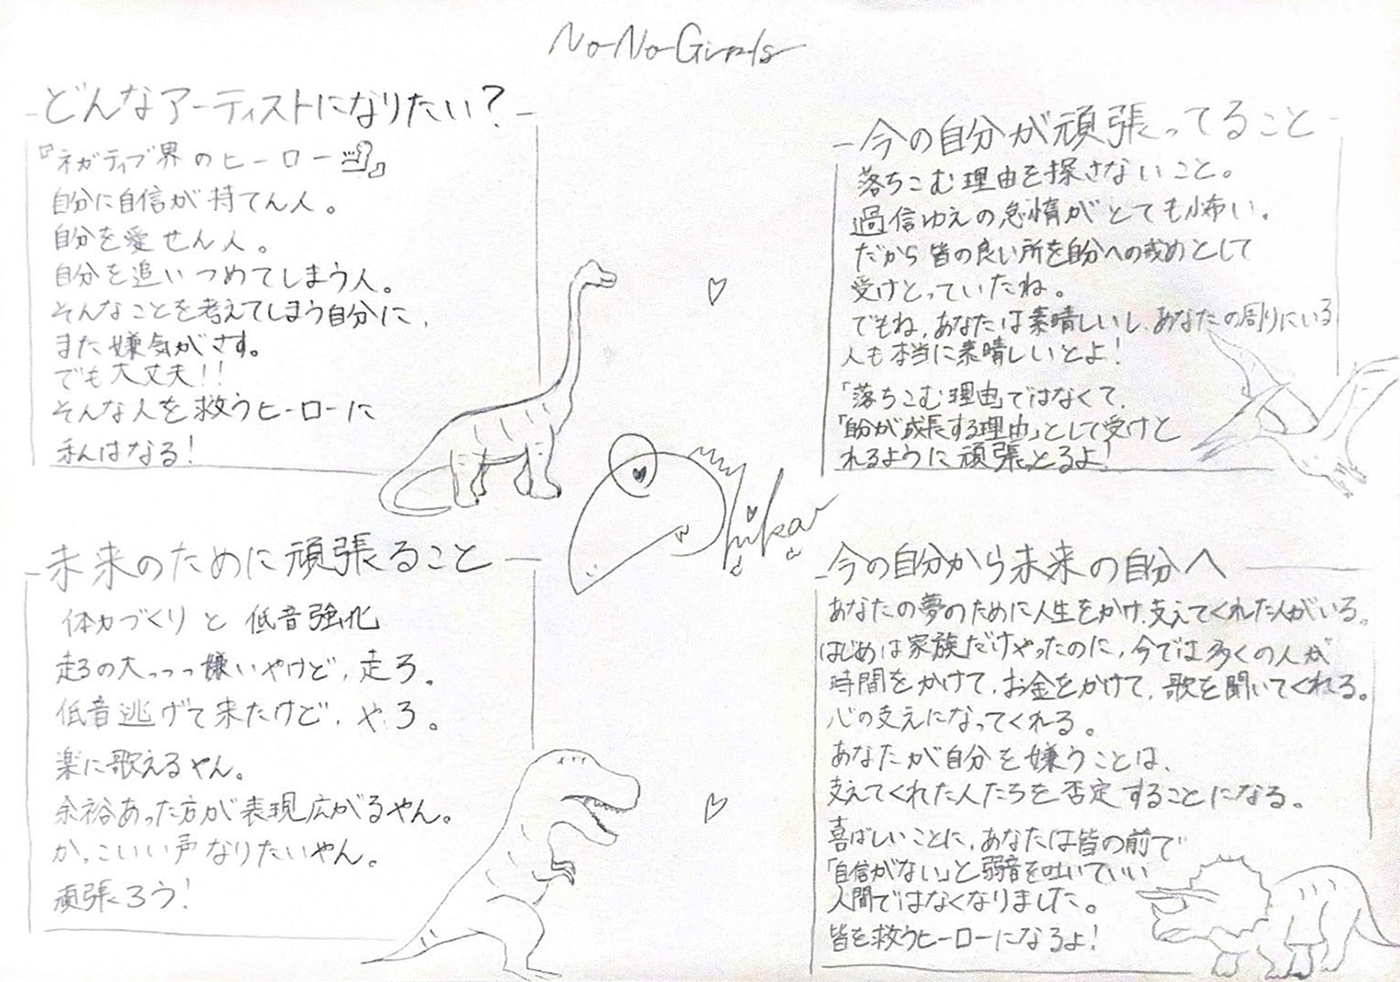 No No Girls
どんなアーティストになりたい?
『ネガティブ界のヒーロー
自分に自信が持てん人。
自分を愛せん人。
自分を追いつめてしまう人。
そんなことを考えてしまう自分に、
また嫌気がさす。
でも大丈夫!!
そんな人を救うヒーローに
私はなる!
今の自分が頑張ってること
落ちこむ理由を探さないこと。
過信ゆえの怠惰がとても怖い。
だから皆の良い所を自分への戒めとして
受けとっていたね。
でもね、あなたは素晴しいし、あなたの周りにいる
人も本当に素晴しいとよ!
「落ちこむ理由」ではなくて、
「自分が成長する理由」として受けと
れるように頑張っとるよ!
hikaru
未来のために頑張ること
体力づくりと低音強化
走るの大っっっ嫌いやけど、走ろ。
低音逃げて来たけど、やろ。
楽に歌えるやん。
余裕あった方が表現広がるやん。
かっこいい声なりたいやん。
頑張ろう!
今の自分から未来の自分へ
あなたの夢のために人生をかけ、支えてくれた人がいる。
はじめは家族だけやったのに、今では多くの人が
時間をかけて、お金をかけて、歌を聞いてくれる。
心の支えになってくれる。
あなたが自分を嫌うことは、
支えてくれた人たちを否定することになる。
喜ばしいことに、あなたは皆の前で
「自信がない」と弱音を吐いていい
人間ではなくなりました。
皆を救うヒーローになるよ!